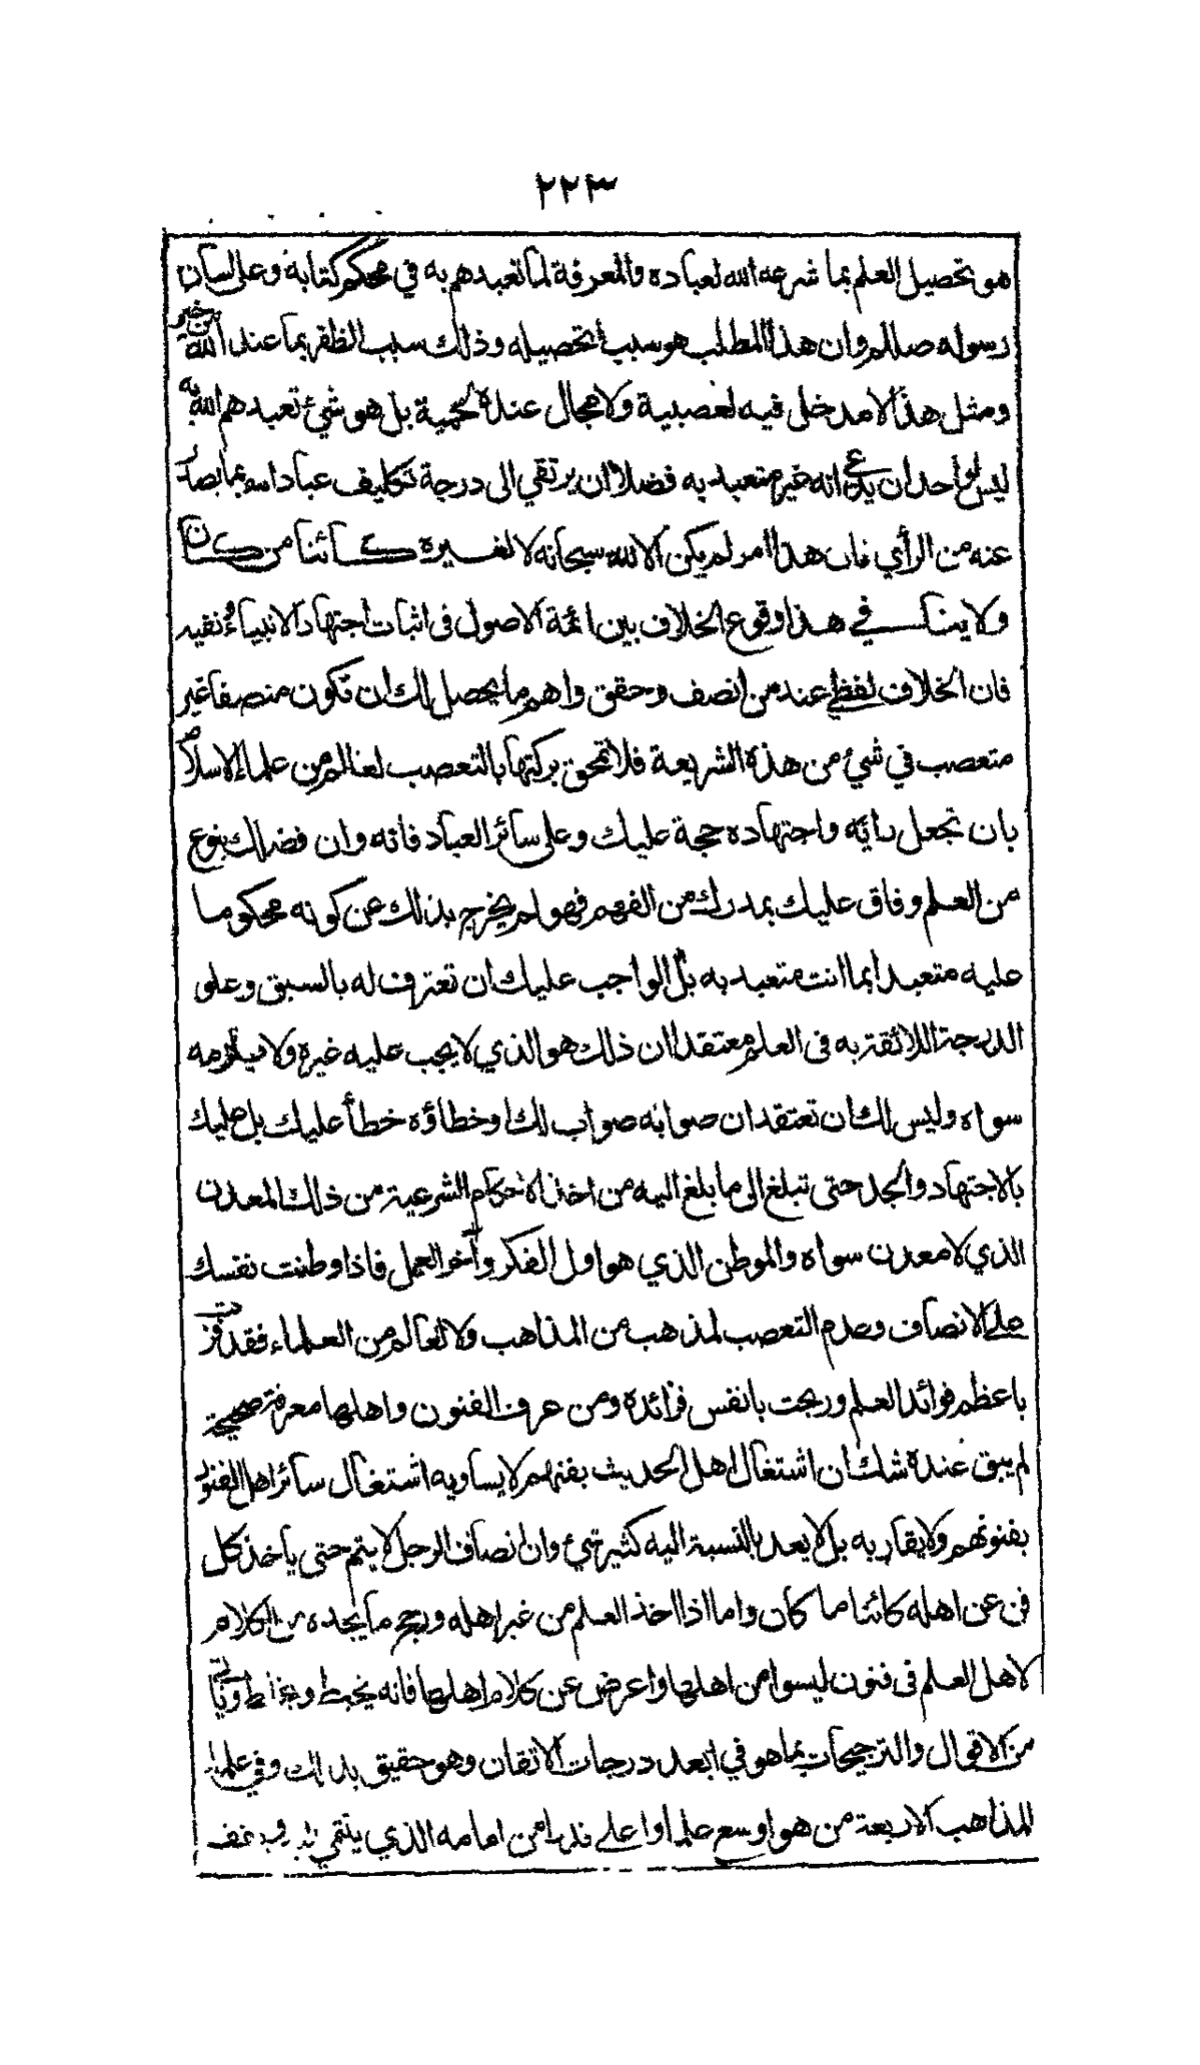 ٢٢٣
هو تحصيل العلم بما شرعه الله لعباده والمعرفة لما تعبدهم به في محكم كتابه وعلى لسان
رسوله صللم وان هذا المطلب هو سبب تحصيله وذلك سبب الظفر بما عند الله من خير
ومثل هذا لا مدخل فيه لعصبية ولا مجال عنده لحمية بل هو شيء تعبدهم الله به
ليس لواحد ان يدعي انه غير متعبد به فضلا ان يرتقي الى درجة تكليف عباد الله بما يصدر
عنه من الرأي فان هذا امر لم يكن الا لله سبحانه لا لغيره كائنا من كان
ولا ينافي هذا وقوع الخلاف بين ائمة الاصول في اثبات اجتهاد الانبياء ونفيه
فان الخلاف لفظي عند من انصف وحقق واهم ما يحصل لك ان تكون منصفا غير
متعصب في شيء من هذه الشريعة فلا تمحق بركتها بالتعصب لعالم من علماء الاسلام
بان تجعل رأيه واجتهاده حجة عليك وعلى سائر العباد فانه وان فضلك بنوع
من العلم وفاق عليك بمدرك من الفهم فهو لم يخرج بذلك عن كونه محكوما
عليه متعبدا بما انت متعبد به بل الواجب عليك ان تعترف له بالسبق وعلو
الدرجة اللائقة به في العلم معتقدا ان ذلك هو الذي لا يجب عليه غيره ولا يلزمه
سواه وليس لك ان تعتقد ان صوابه صواب لك او خطاؤه خطأ عليك بل عليك
بالاجتهاد والجد حتى تبلغ الى ما بلغ اليه من اخذ الاحكام الشرعية من ذلك المعدن
الذي لا معدن سواه والموطن الذي هو اول الفكر وآخر العمل فاذا وطنت نفسك
على الانصاف وعدم التعصب لمذهب من المذاهب ولا لعالم من العلماء فقد فزت
باعظم فوائد العلم وربحت بانفس فرائده ومن عرف الفنون واهلها معرفة صحيحة
لم يبق عنده شك ان اشتغال اهل الحديث بفنهم لا يساويه اشتغال سائر اهل الفنون
بفنونهم ولا يقاربه بل لا يعد بالنسبة اليه كثير شيء وان انصاف الرجل لا يتم حتى يأخذ كل
فن عن اهله كائنا ما كان واما اذا اخذ العلم من غير اهله ورجح ما يجده من الكلام
لاهل العلم في فنون ليسوا من اهلها واعرض عن كلام اهلها فانه يخبط ويخلط ويأتي
من الاقوال والترجيحات بما هو في ابعد درجات الاتقان وهو حقيق بذلك وفي علماء
المذاهب الاربعة من هو اوسع علما واعلى قدرا من امامه الذي ينتمي